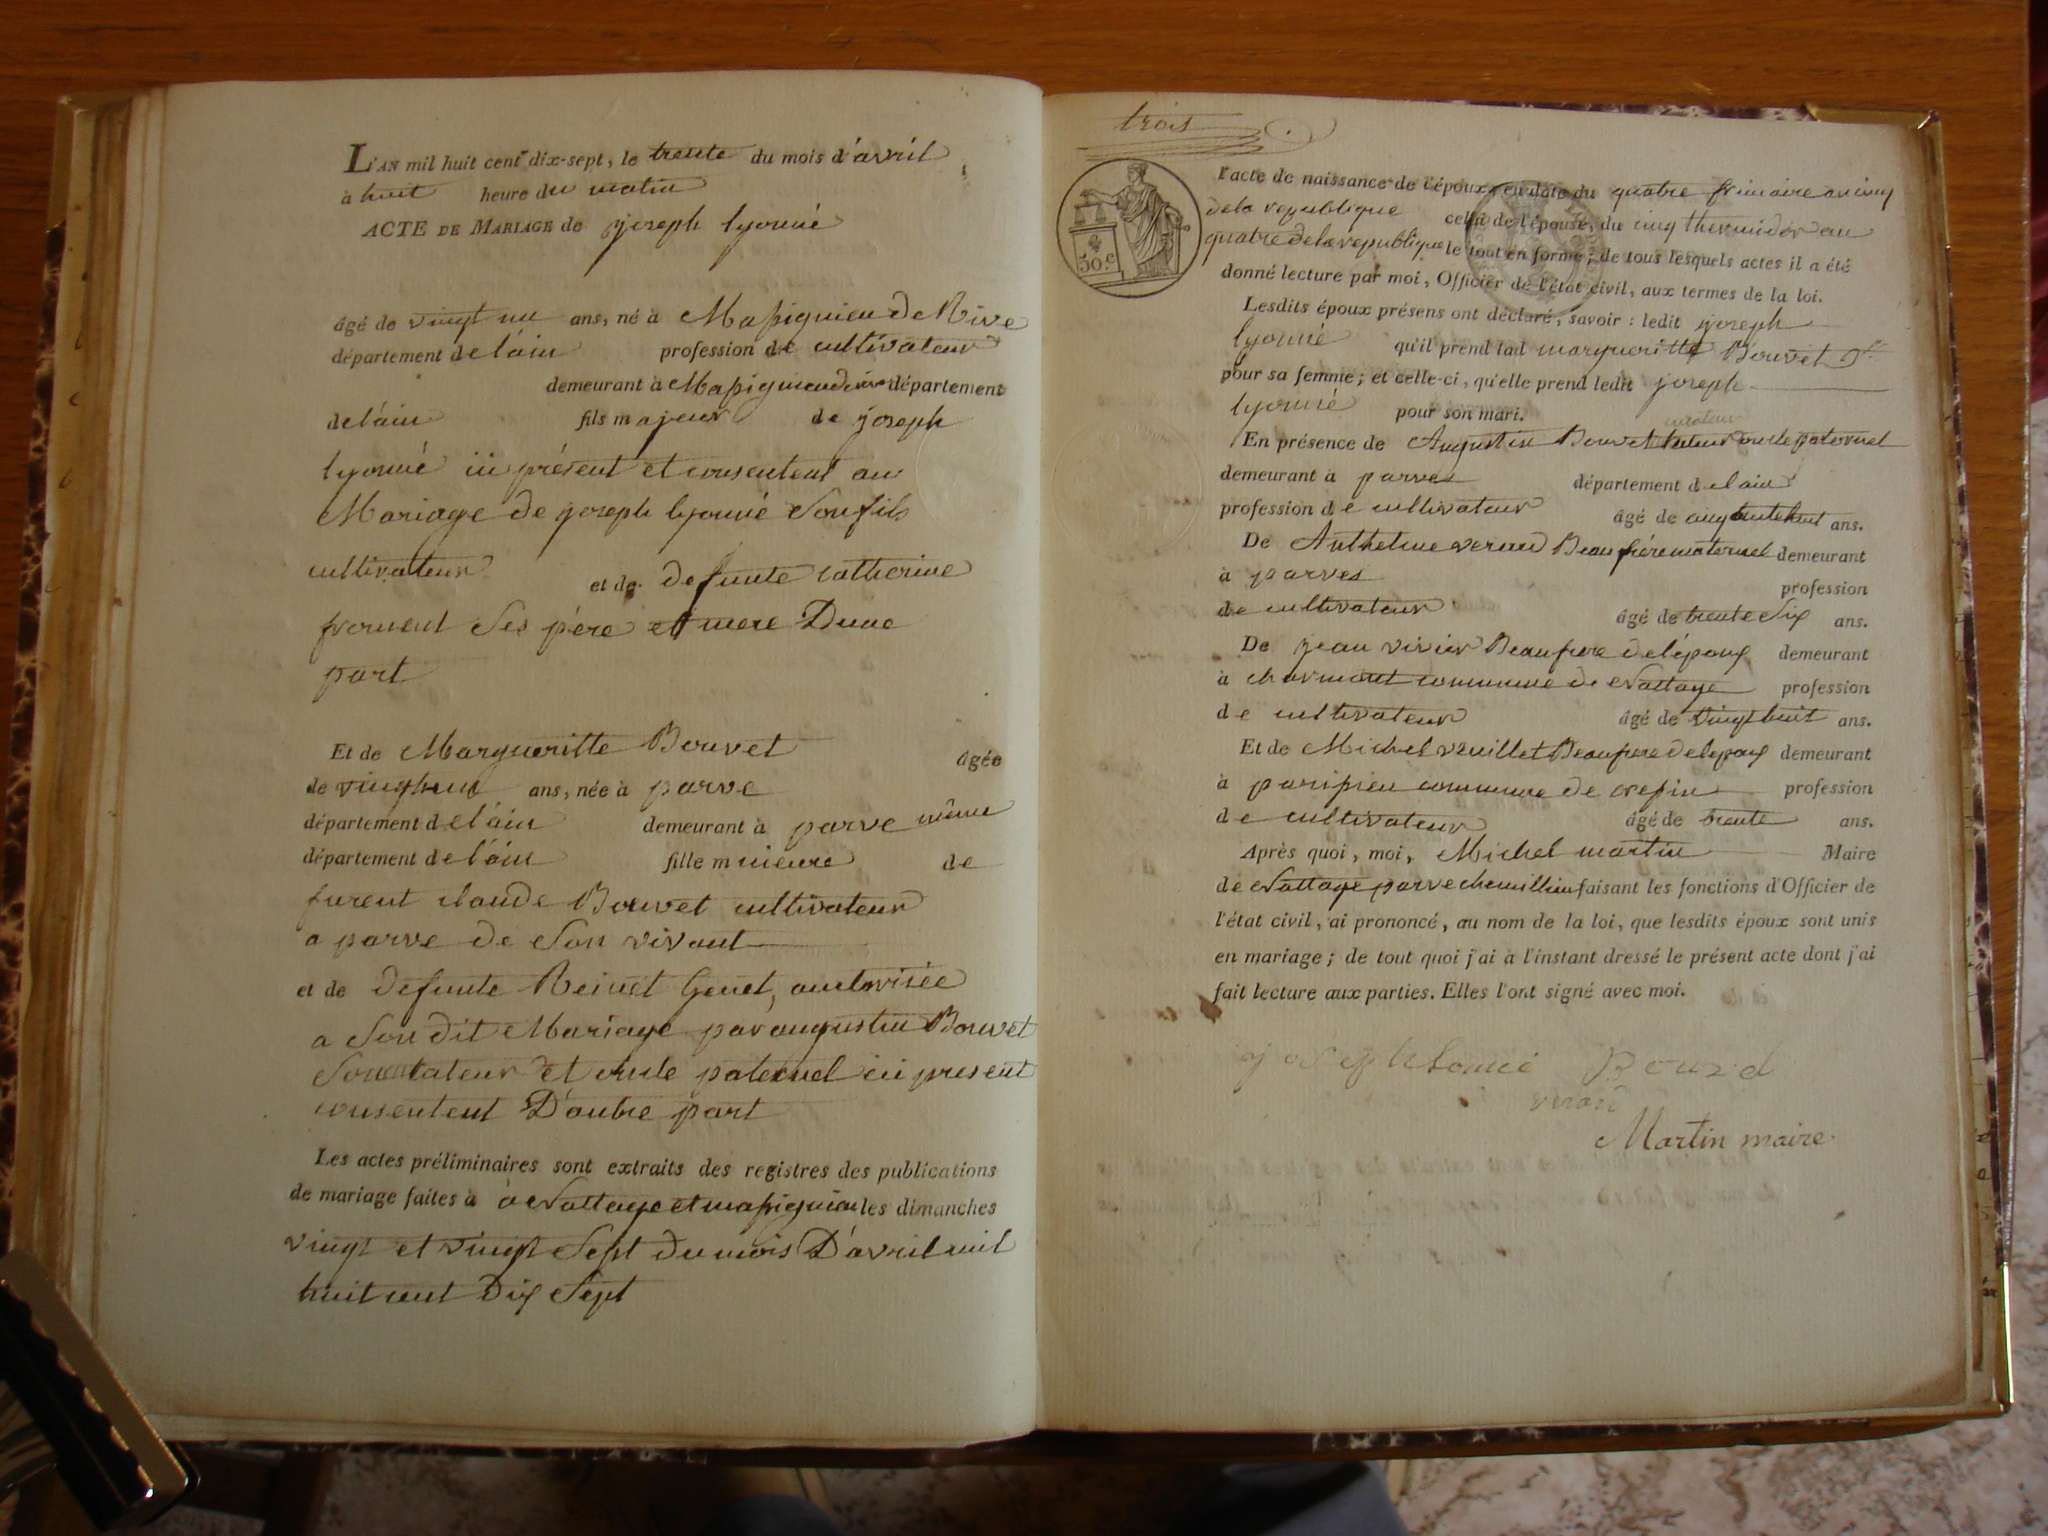 L'AN mil huit cent dix-sept, le trente du mois d'avril
à huit heure du matin
ACTE DE MARIAGE de joseph lyonné
âgé de vingt un ans, né à Massignieu de Rive
département de láin profession de cultivateur
demeurant à Massignieu de rive département
de láin fils majeur de joseph
lyonné ici présent et consentent au
Mariage de joseph lyonné Son fils
cultivateur et de defunte catherine
froment Ses pére et mere Dune
part
Et de Margueritte Bouvet âgée
de vingt ans, née à parve
département de láin demeurant à parve même
département de láin fille mineure de
furent claude Bouvet cultivateur
a parve de Son vivant
et de defunte Genet, autorisée
a Son dit Mariage par augustin Bouvet
Son curateur et oncle paternel ici present
consentent D'autre part
Les actes préliminaires sont extraits des registres des publications
de mariage faites à à Nattage et massignieu les dimanches
vingt et vingt Sept du mois D'avril mil
huit cent Dix Sept
trois
50.c
l'acte de naissance de l'époux, en date du quatre frimaire an cinq
de la republique celui de l'épouse, du cinq thermidor an
quatre de la republique le tout en forme; de tous lesquels actes il a été
donné lecture par moi, Officier de l'état civil, aux termes de la loi.
Lesdits époux présens ont déclaré, savoir : ledit joseph
lyonné qu'il prend lad margueritte Bouvet
pour sa femme; et celle-ci, qu'elle prend ledit joseph
lyonné pour son mari.
curateur
En présence de Augustin Bouvet tuteur oncle paternel
demeurant à parves département de lain
profession de cultivateur âgé de ans.
De Anthelme veraud Beau frére maternel demeurant
à parves profession
de cultivateur âgé de trente Six ans.
De jean vivier Beaufrere de lépoux demeurant
à charmont commune de Nattage profession
de cultivateur âgé de vingt huit ans.
Et de Michel vuillet Beaufrere de lepoux demeurant
à parissieu commune de profession
de cultivateur âgé de trente ans.
Après quoi, moi, Michel martin Maire
de Nattage parve chemillieu faisant les fonctions d'Officier de
l'état civil, ai prononcé, au nom de la loi, que lesdits époux sont unis
en mariage; de tout quoi j'ai à l'instant dressé le présent acte dont j'ai
fait lecture aux parties. Elles l'ont signé avec moi.
joseph
Martin maire